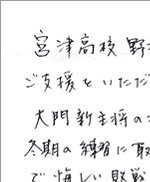 宮津高校野
ご支援をいただ
大門新主将の
冬期の練習に取
で悔しい敗戦